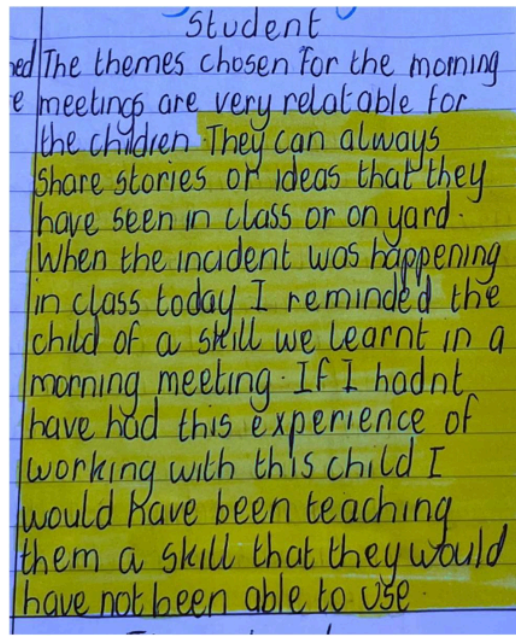 Student
The themes chosen for the morning
meetings are very relatable for
the children. They can always
share stories or ideas that they
have seen in class or on yard.
When the incident was happening
in class today I reminded the
child of a skill we learnt in a
morning meeting. If I hadnt
have had this experience of
working with this child I
would have been teaching
them a skill that they would
have not been able to use.